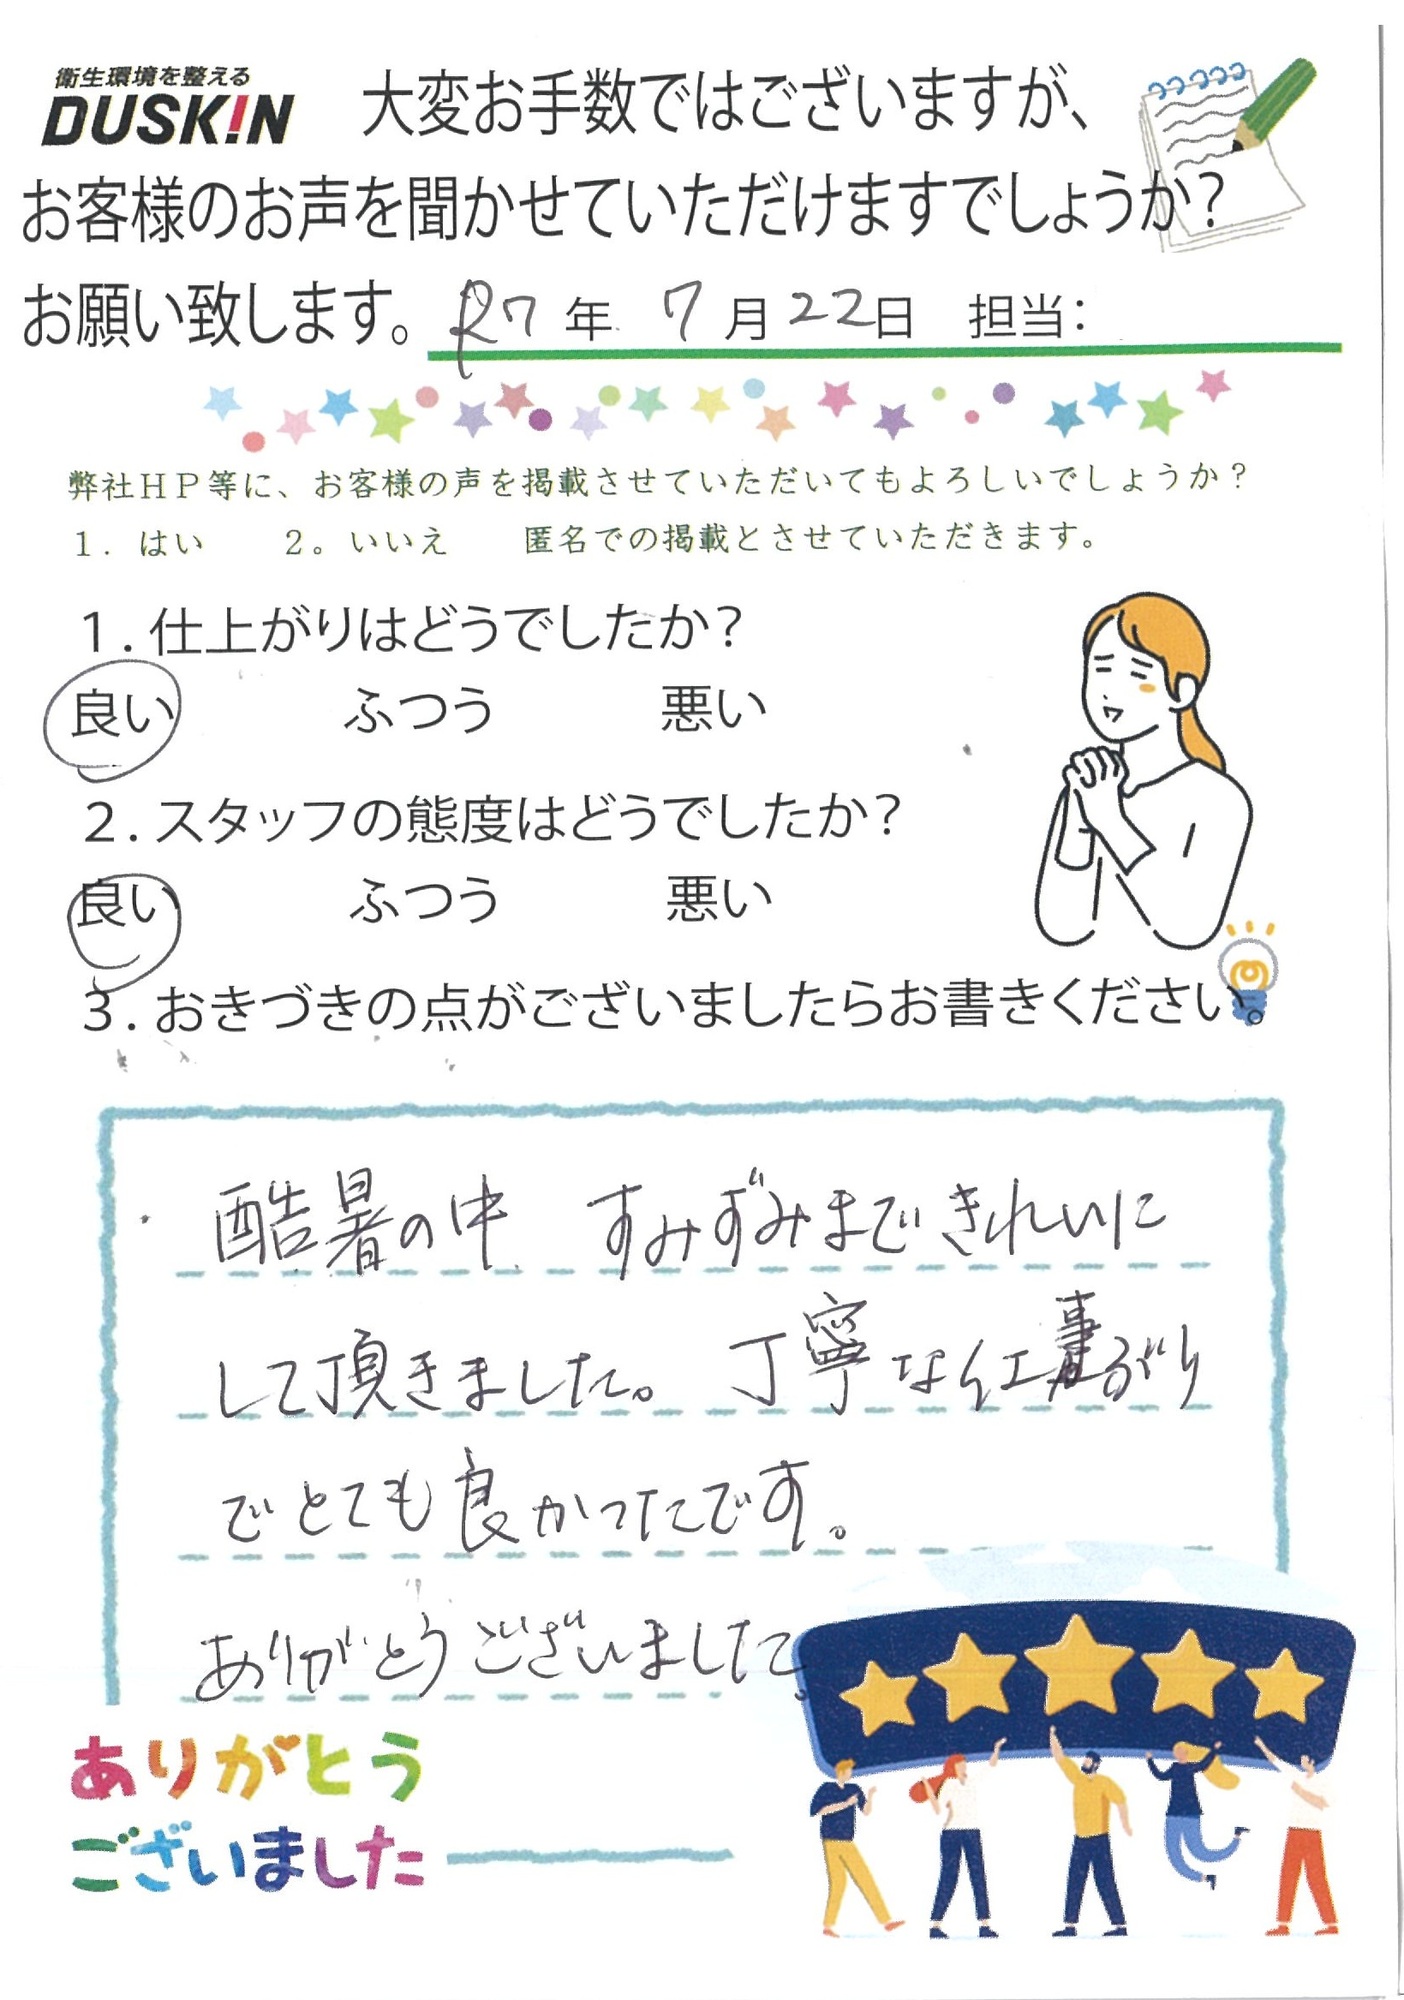 衛生環境を整える
DUSK!N
大変お手数ではございますが、
お客様のお声を聞かせていただけますでしょうか?
お願い致します。 R7 年 7 月 22日 担当:
弊社HP等に、お客様の声を掲載させていただいてもよろしいでしょうか?
1. はい 2。いいえ 匿名での掲載とさせていただきます。
1.仕上がりはどうでしたか?
良い ふつう 悪い
2.スタッフの態度はどうでしたか?
良い ふつう 悪い
3.おきづきの点がございましたらお書きください。
酷暑の中 すみずみまできれいに
して頂きました。丁寧な仕事ぶり
でとても良かったです。
ありがとうございました。
ありがとう
ございました